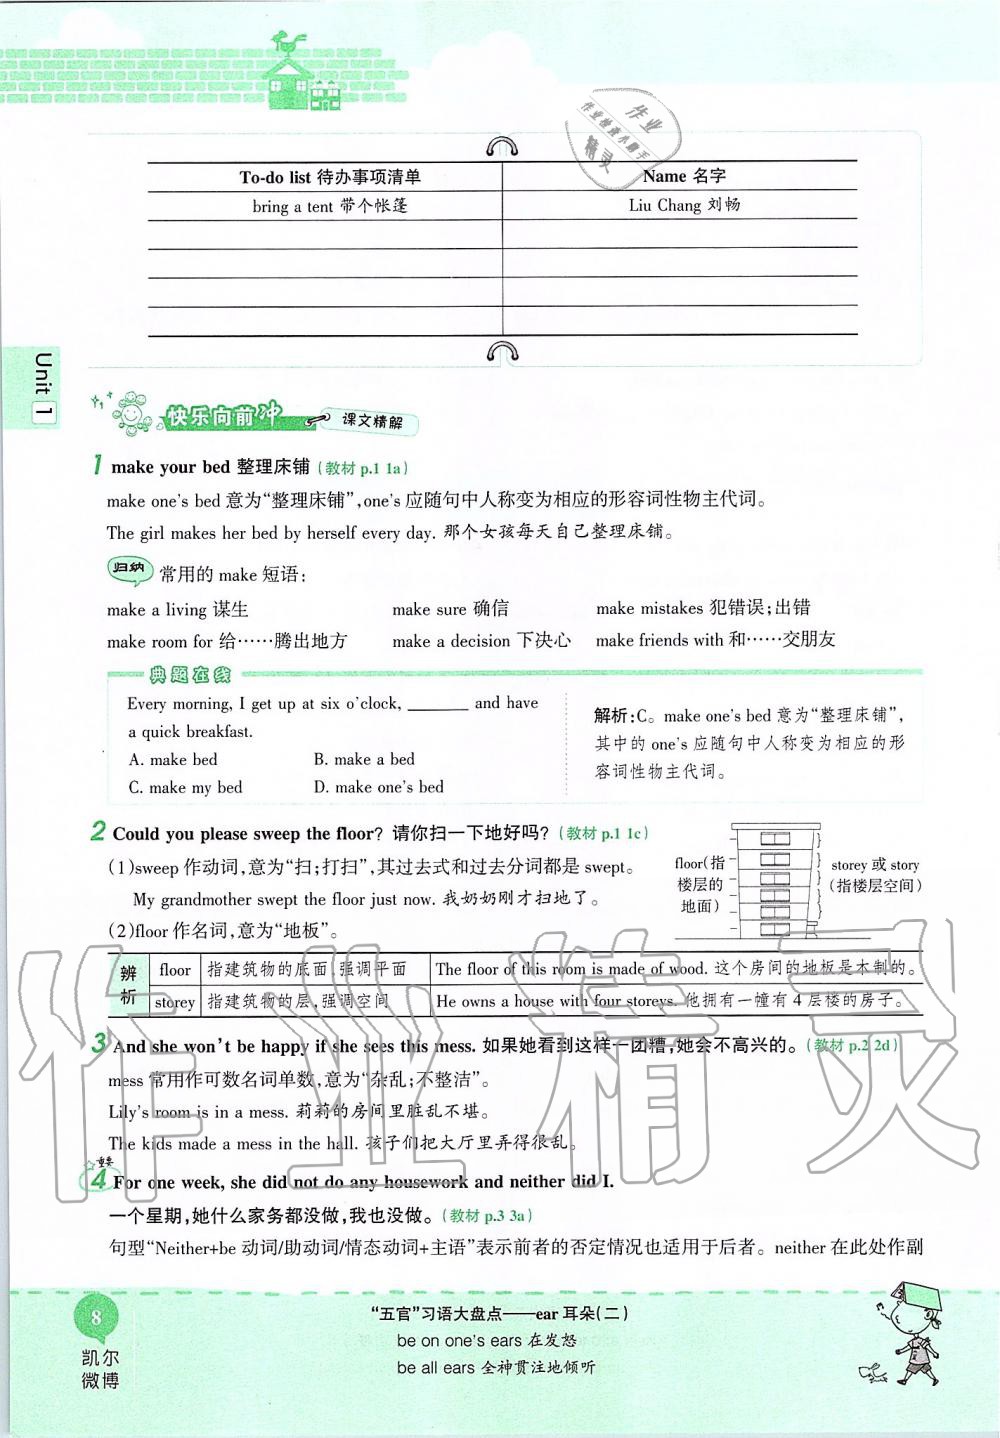 To-do list 待办事项清单 Name 名字
bring a tent 带个帐篷 Liu Chang 刘畅
作业
作业检查小助手
精灵
Unit 1
快乐向前冲 课文精解
1 make your bed 整理床铺(教材 p.1 1a)
make one's bed 意为“整理床铺”,one's 应随句中人称变为相应的形容词性物主代词。
The girl makes her bed by herself every day. 那个女孩每天自己整理床铺。
归纳 常用的 make 短语:
make a living 谋生 make sure 确信 make mistakes 犯错误;出错
make room for 给……腾出地方 make a decision 下决心 make friends with 和……交朋友
典题在线
Every morning, I get up at six o'clock, ______ and have
a quick breakfast.
A. make bed B. make a bed
C. make my bed D. make one's bed
解析:C。make one's bed 意为“整理床铺”,
其中的 one's 应随句中人称变为相应的形
容词性物主代词。
2 Could you please sweep the floor? 请你扫一下地好吗?(教材 p.1 1c)
(1)sweep 作动词,意为“扫;打扫”,其过去式和过去分词都是 swept。
My grandmother swept the floor just now. 我奶奶刚才扫地了。
(2)floor 作名词,意为“地板”。
floor(指
楼层的
地面)
storey 或 story
(指楼层空间)
辨析
floor 指建筑物的底面,强调平面 The floor of this room is made of wood. 这个房间的地板是木制的。
storey 指建筑物的层,强调空间 He owns a house with four storeys. 他拥有一幢有 4 层楼的房子。
3 And she won't be happy if she sees this mess. 如果她看到这样一团糟,她会不高兴的。(教材 p.2 2d)
mess 常用作可数名词单数,意为“杂乱;不整洁”。
Lily's room is in a mess. 莉莉的房间里脏乱不堪。
The kids made a mess in the hall. 孩子们把大厅里弄得很乱。
重要
4 For one week, she did not do any housework and neither did I.
一个星期,她什么家务都没做,我也没做。(教材 p.3 3a)
句型“Neither+be 动词/助动词/情态动词+主语”表示前者的否定情况也适用于后者。neither 在此处作副
作业精灵
8
凯尔
微博
“五官”习语大盘点——ear 耳朵(二)
be on one's ears 在发怒
be all ears 全神贯注地倾听